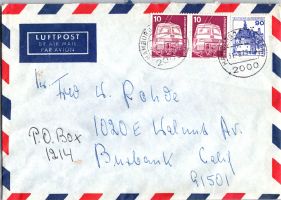 LUFTPOST
BY AIR MAIL
PAR AVION
10
10
90
2000
Fred W. Rohde
P.O. Box
1214
1020 E Walnut Av.
Burbank Calif
91501